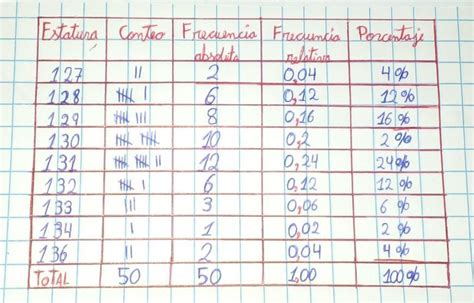 Estatura Conteo Frecuencia absoluta Frecuencia relativa Porcentaje
127 || 2 0,04 4%
128 𝍸 | 6 0,12 12%
129 𝍸 ||| 8 0,16 16%
130 𝍸 𝍸 10 0,2 2%
131 𝍸 𝍸 || 12 0,24 24%
132 𝍸 | 6 0,12 12%
133 ||| 3 0,06 6%
134 | 1 0,02 2%
136 || 2 0,04 4%
TOTAL 50 50 1,00 100%